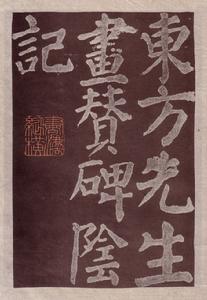 東方先生
畫贊碑陰
記